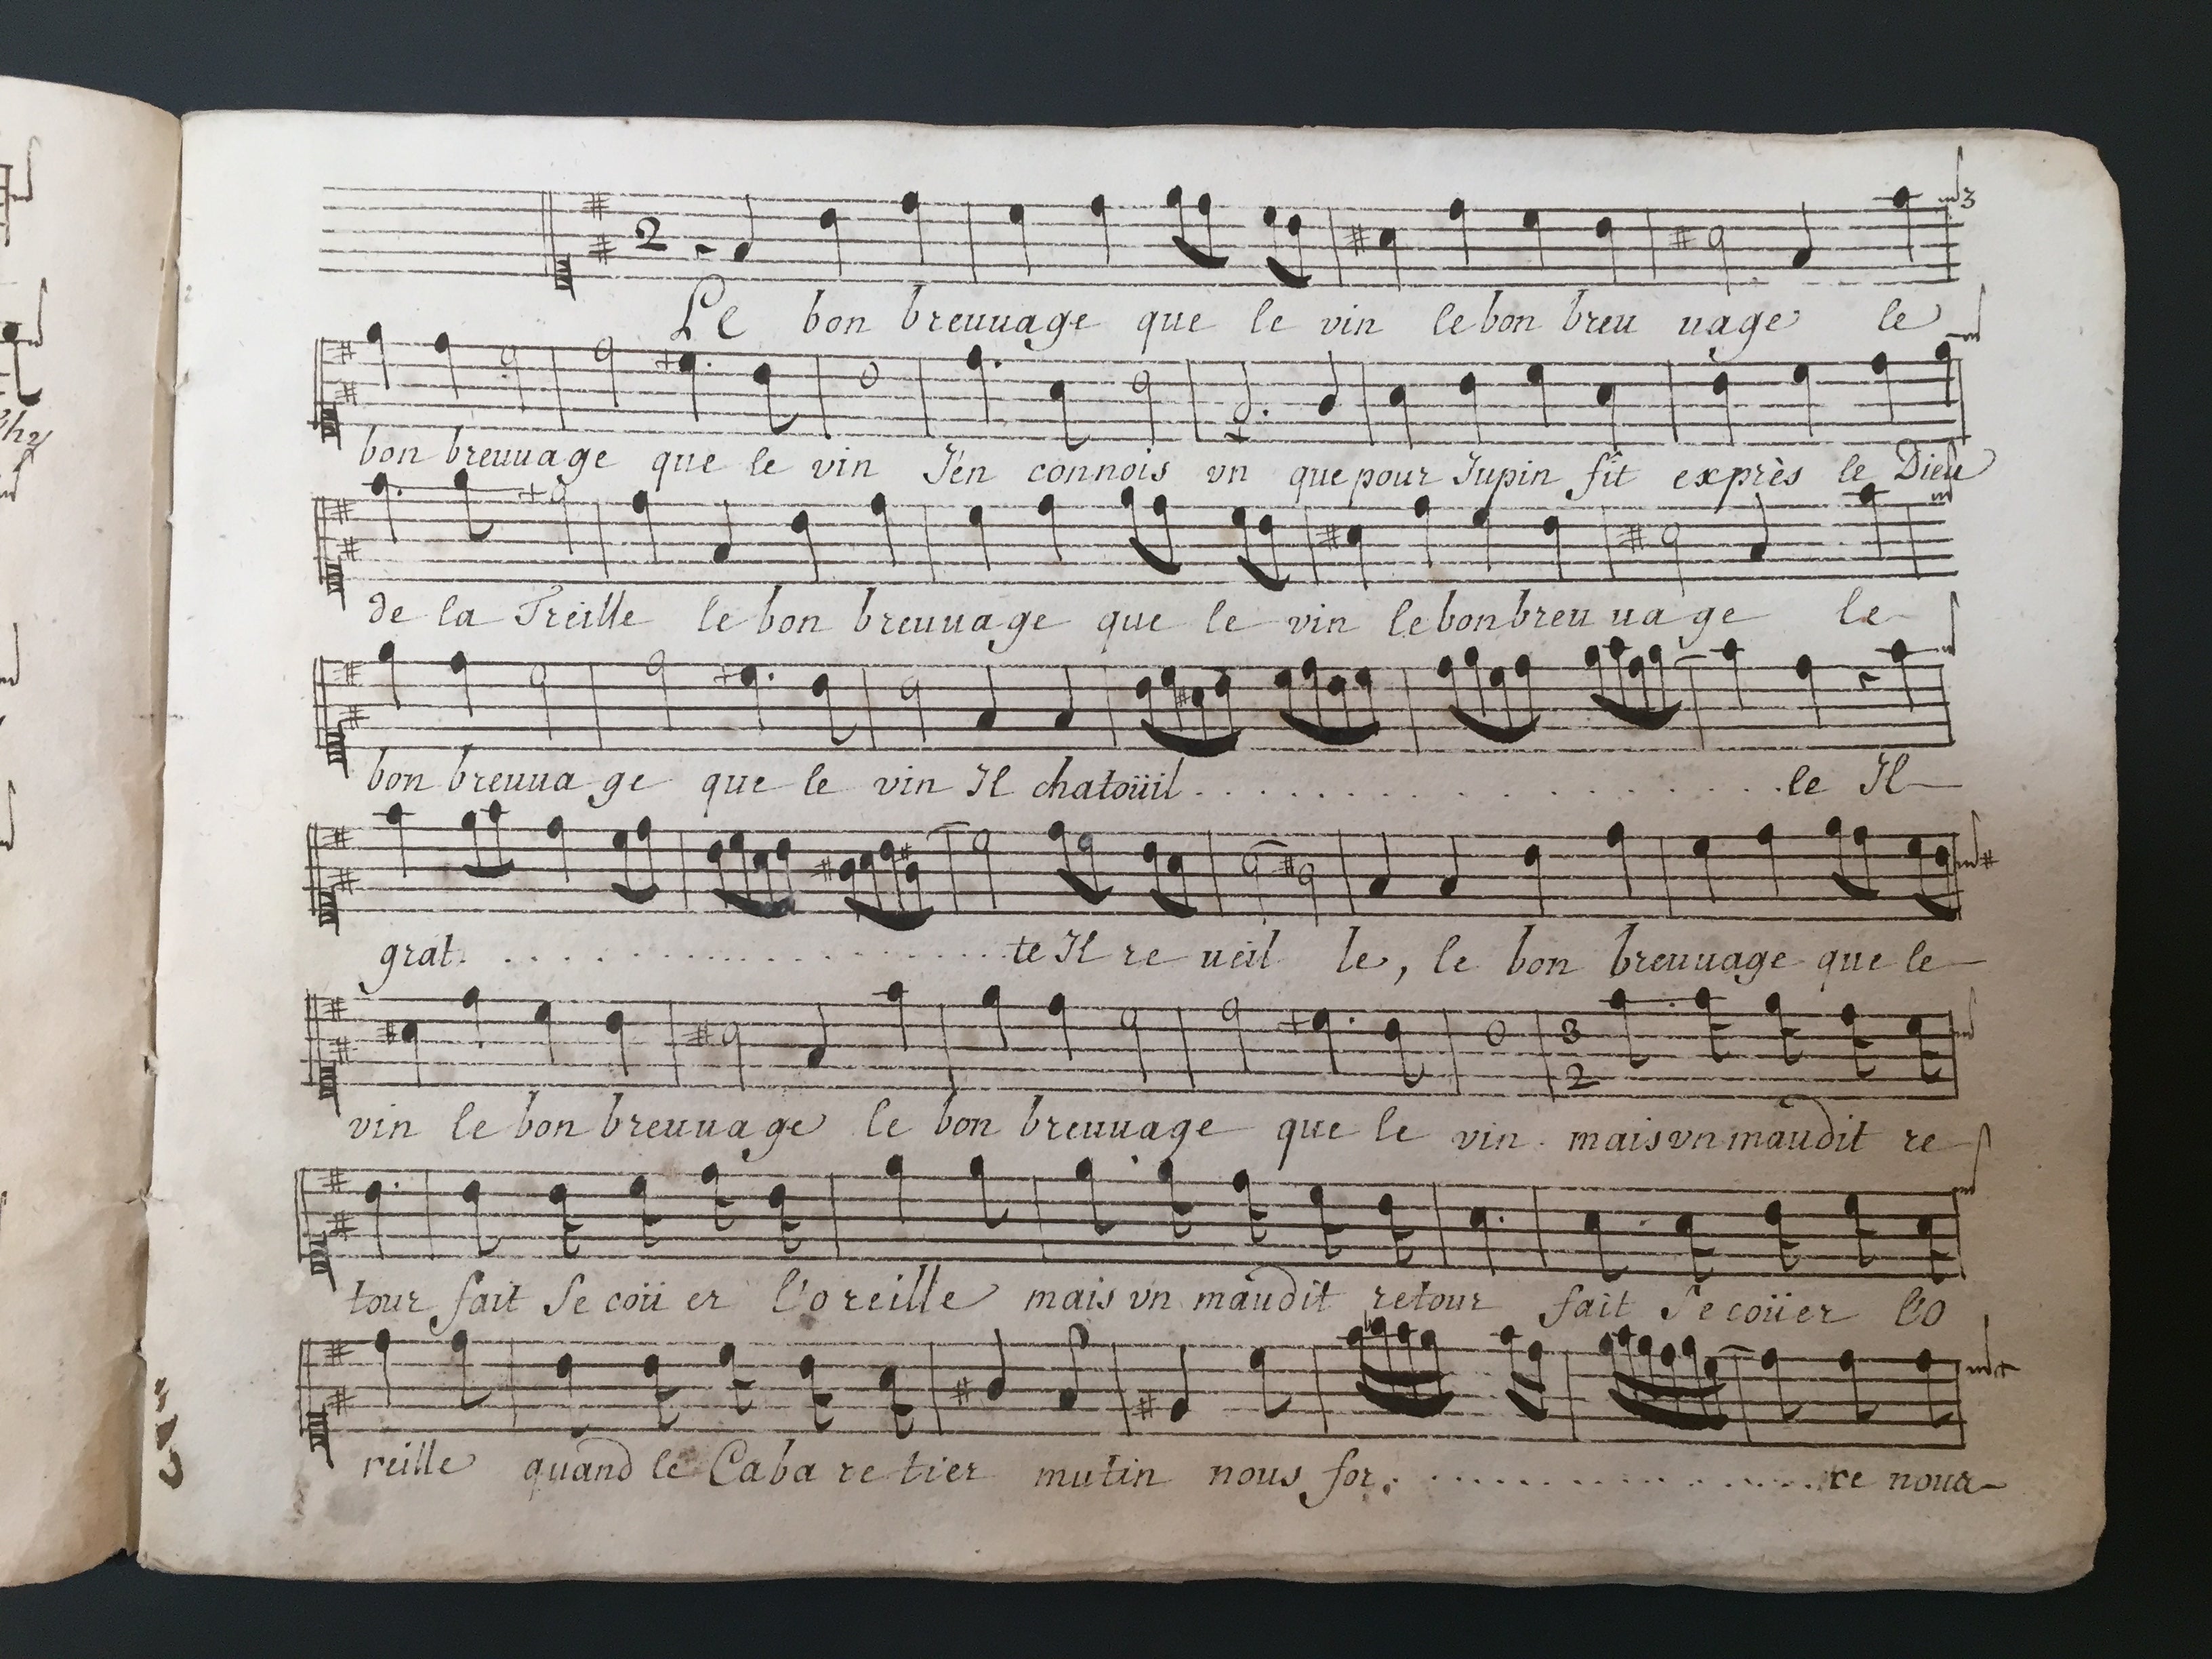 2
Le bon breuuage que le vin le bon breu uage le
bon breuuage que le vin J'en connois vn que pour Jupin fît exprès le Dieu
de la Treille le bon breuuage que le vin le bon breu ua ge le
bon breuua ge que le vin Il chatoüil. . . . . . . . . . . . . . . . . . le Il
grat. . . . . . . . . . . . . . . . . . te Il re ueil le, le bon breuuage que le
3
2
vin le bon breuua ge le bon breuuage que le vin. mais vn maudit re
tour fait Se coü er l'oreille mais vn maudit retour fait Se coüer l'o
reille quand le Caba re tier mutin nous for. . . . . . . . . . . . . . . ce nous